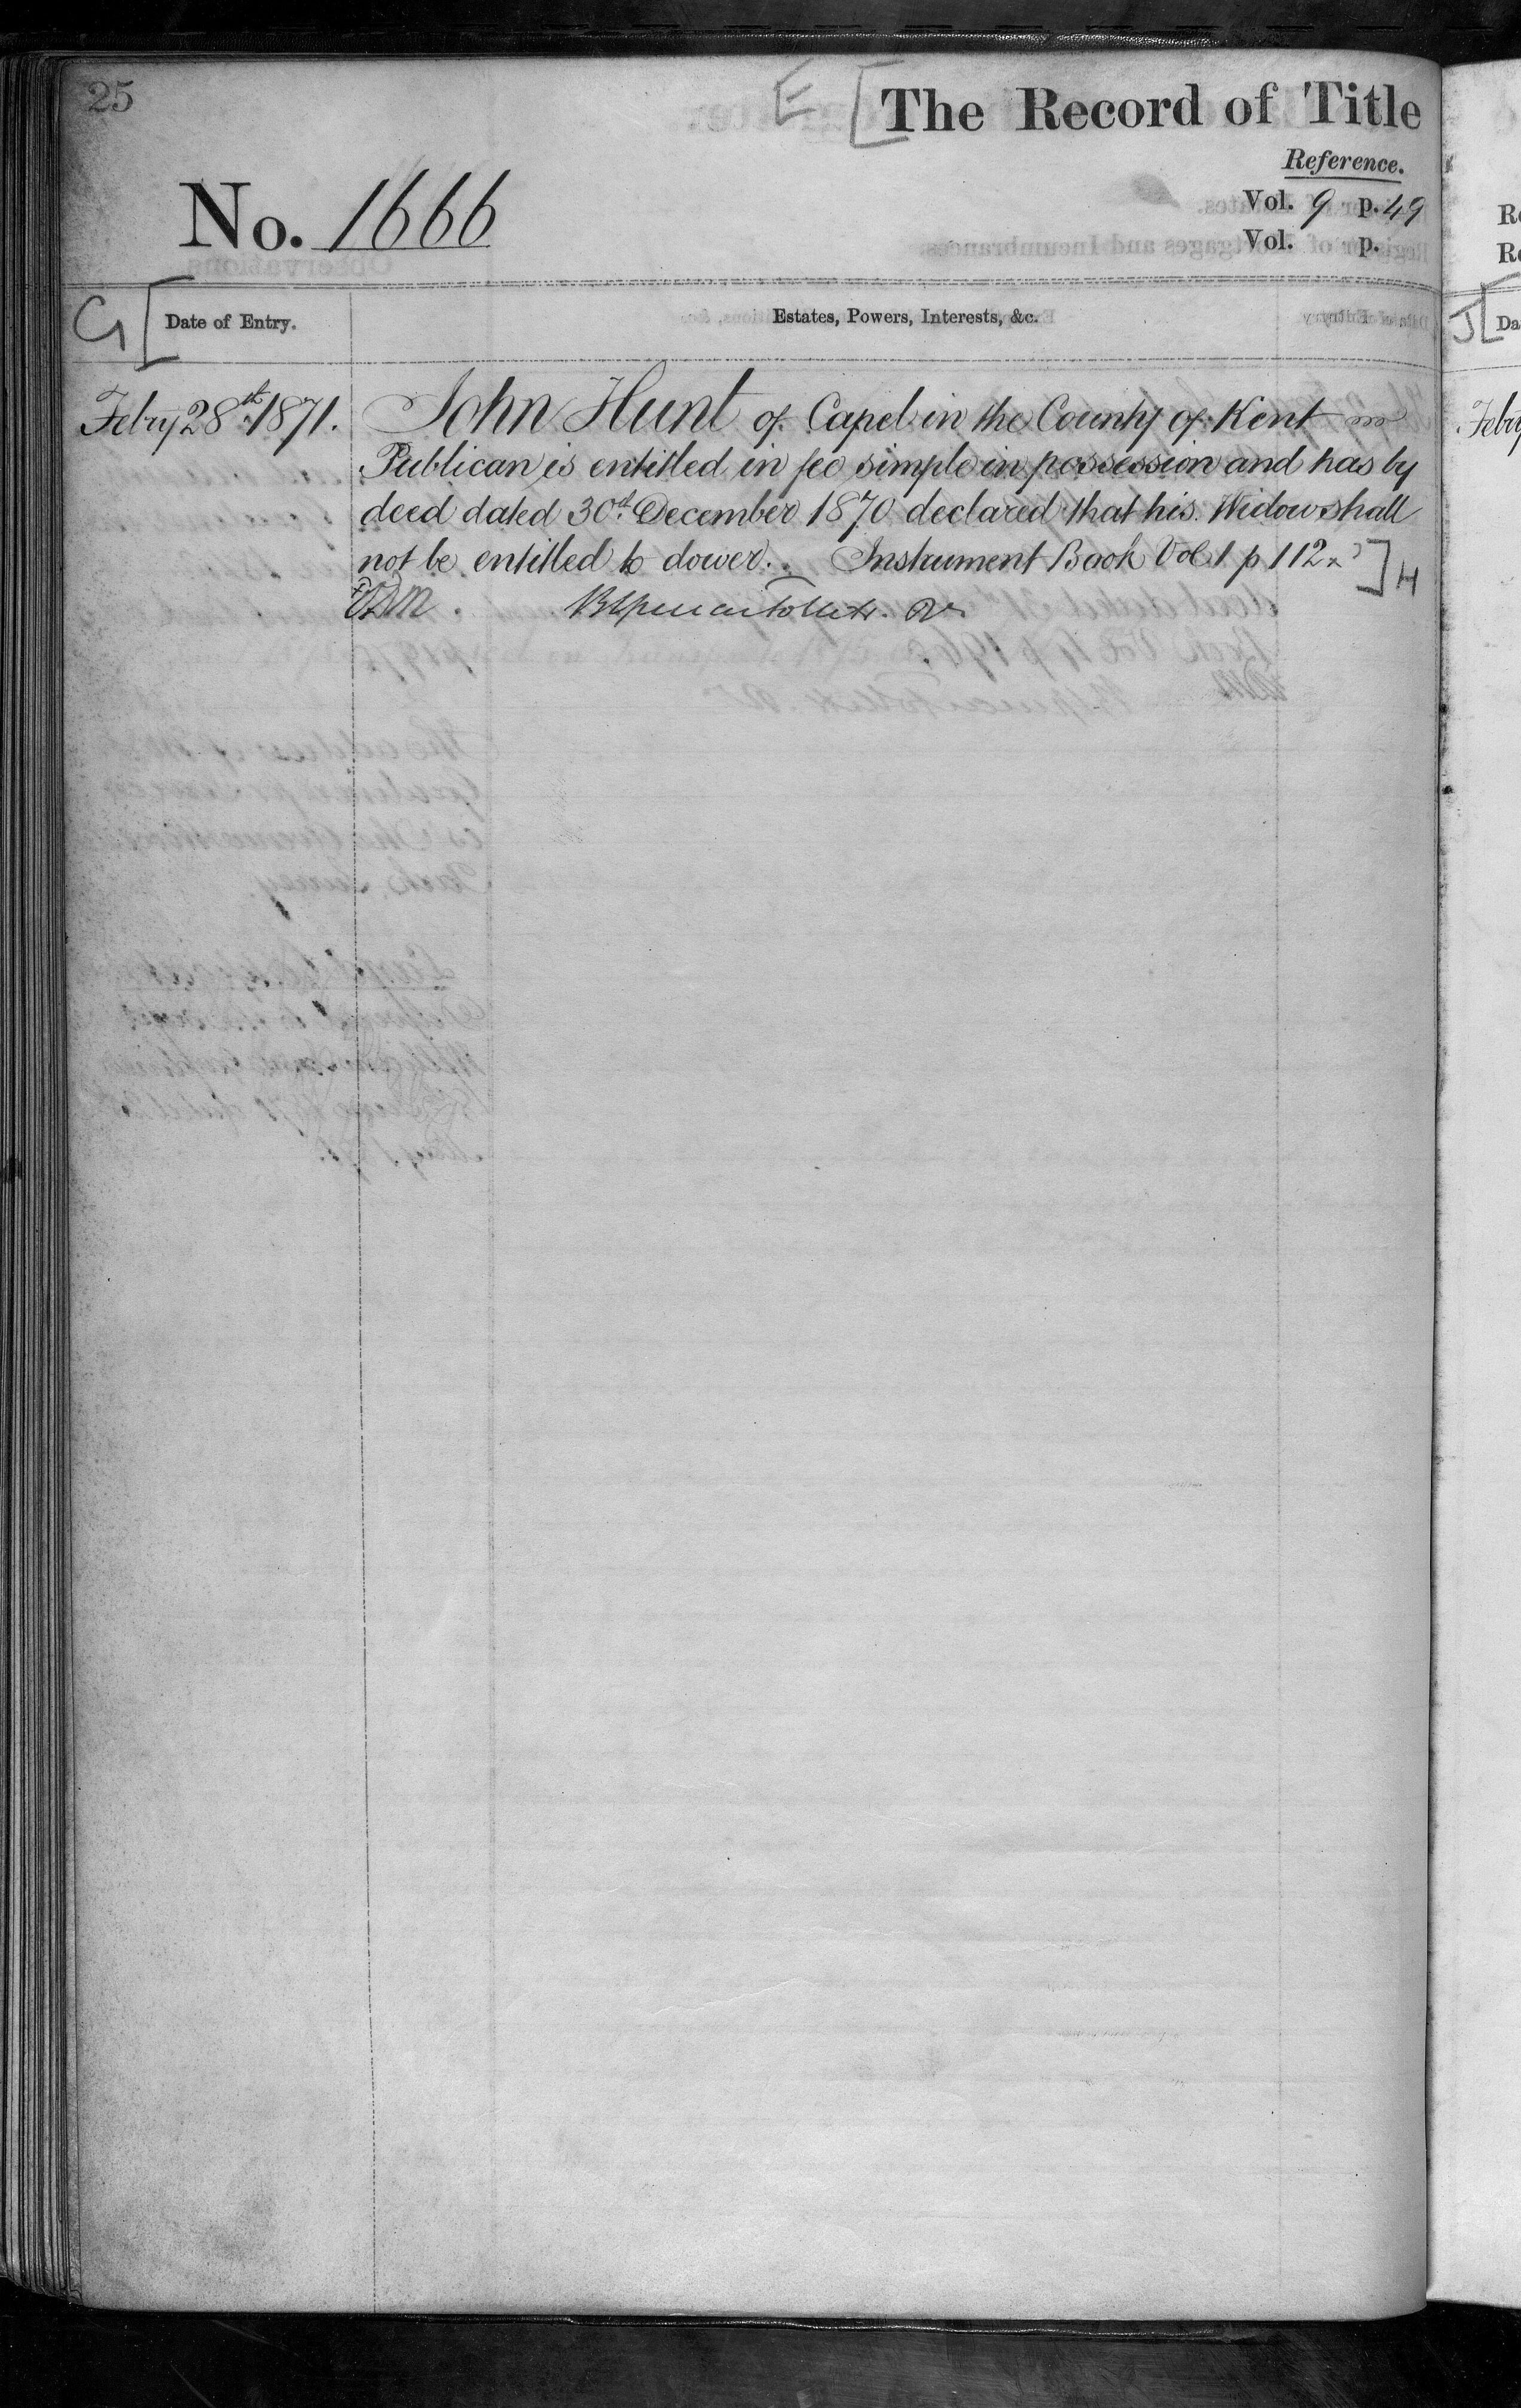 25
E [ The Record of Title
Reference.
No. 1666
Vol. 9 p. 49
Vol. p.
G [ Date of Entry.
Estates, Powers, Interests, &c.
J [ Da
Febry 28th 1871.
John Hunt of Capel in the County of Kent
Publican is entitled in fee simple in possession and has by
deed dated 30th December 1870 declared that his Widow shall
not be entitled to dower. Instrument Book Vol 1 p 112 ] H
Febry